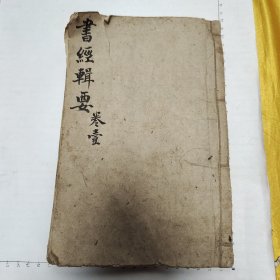 書經輯要
卷壹